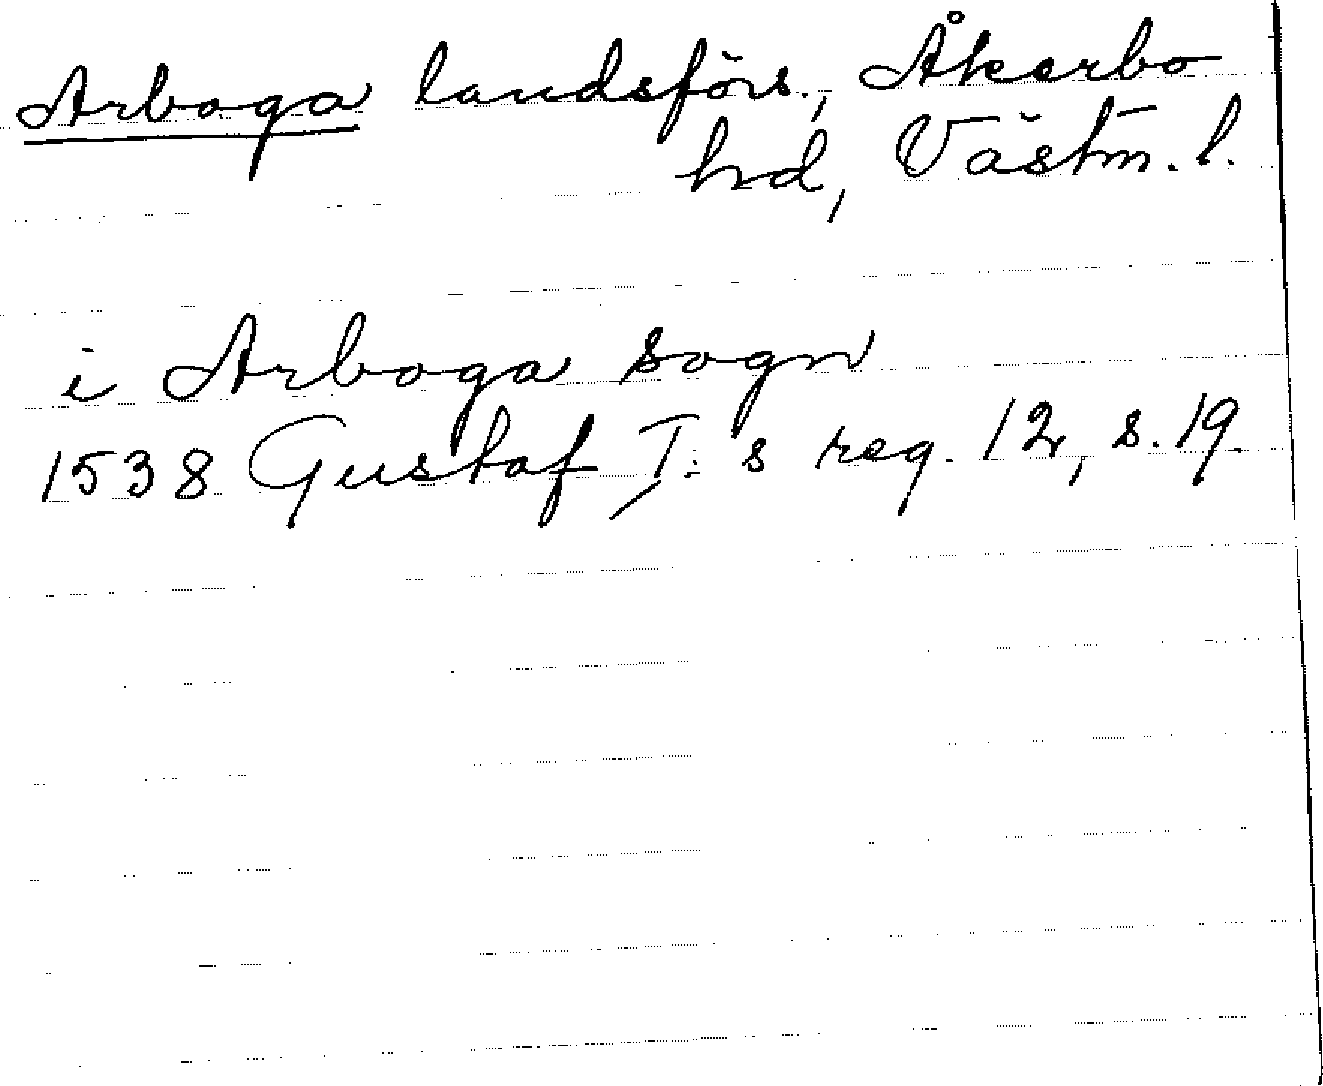 Arboga landsförs., Åkerbo
hd, Västm. l.
i Arboga sogn
1538 Gustaf I: s reg. 12, s. 19.